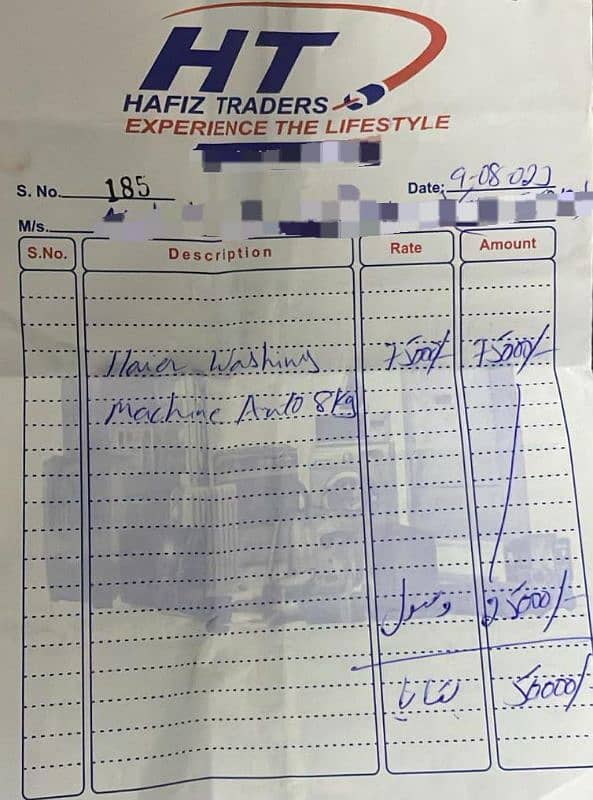 HT
HAFIZ TRADERS
EXPERIENCE THE LIFESTYLE
S. No. 185
Date: 9-08-022
M/s.
S.No. Description Rate Amount
Haier Washing 75000/- 75000/-
Machine Auto 8Kg
وصول 25000/-
بقایا 50000/-